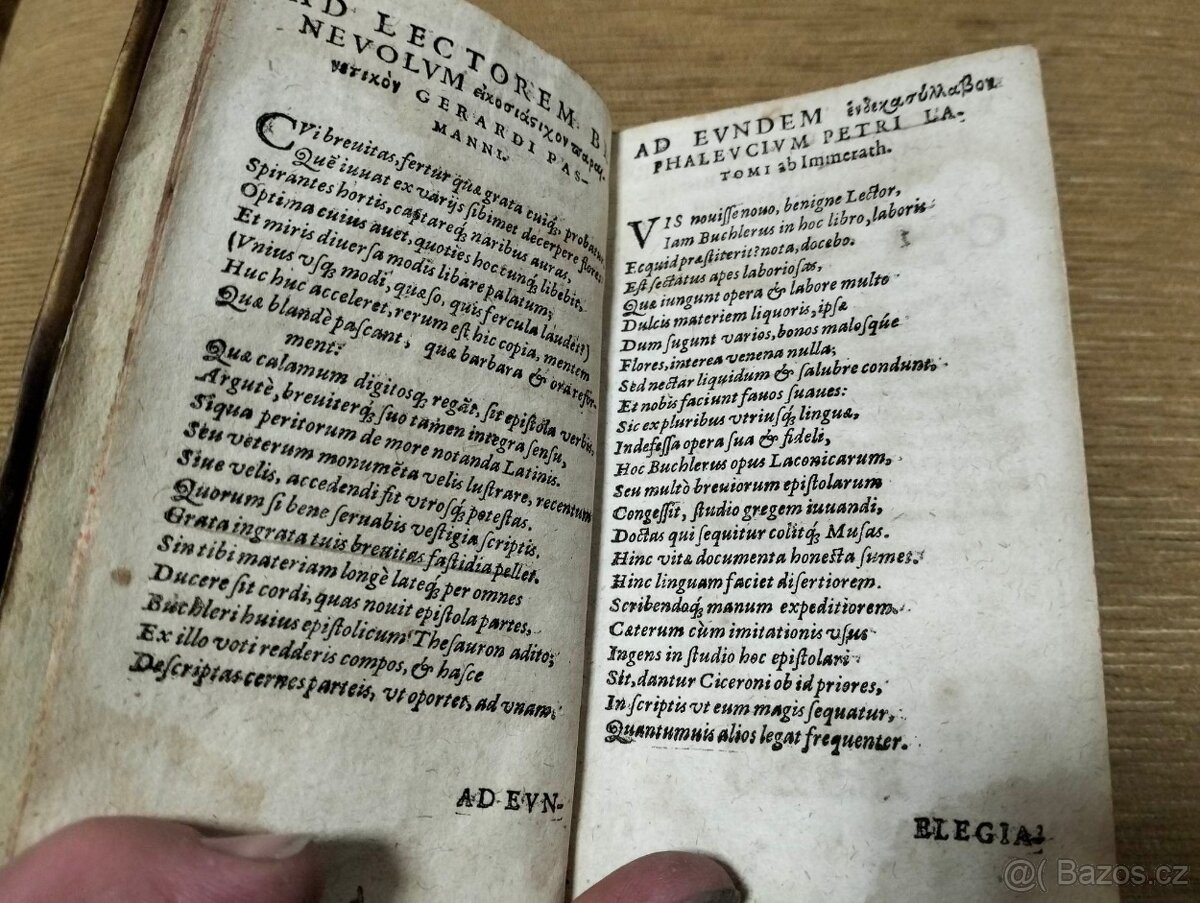 AD LECTOREM BE
NEVOLVM εἰκοσιάστιχον παραι-
νετικὸν GERARDI PAS-
MANNI.
CVi breuitas, fertur quæ grata cuiq́;, probatur,
Quẽ iuuat ex varijs sibimet decerpere flores
Spirantes hortis, captareq́; naribus auras,
Optima cuius auet, quoties hoc tunq́; libebit,
Et miris diuersa modis libare palatum;
(Vnius vsq́; modi, quæso, quis fercula laudet?)
Huc huc acceleret, rerum est hic copia, mentem
Quæ blandè pascant, quæ barbara & ora refor-
ment:
Quæ calamum digitosq́; regãt, sit epistola verbis,
Argutè, breuiterq́; suo tamen integra sensu,
Siqua peritorum de more notanda Latinis.
Seu veterum monumẽta velis lustrare, recentum
Siue velis, accedendi fit vtrosq́; potestas.
Quorum si bene seruabis vestigia scriptis,
Grata ingrata tuis breuitas fastidia pellet.
Sin tibi materiam longè lateq́; per omnes
Ducere sit cordi, quas nouit epistola partes,
Buchleri huius epistolicum Thesauron adito;
Ex illo voti redderis compos, & hasce
Descriptas cernes parteis, vt oportet, ad vnam.
AD EVN-
AD EVNDEM ἑνδεκασύλλαβον
PHALEVCIVM PETRI LA-
TOMI ab Immerath.
VIS nouisse nouo, benigne Lector,
Iam Buchlerus in hoc libro, laboris
Ecquid præstiterit? nota, docebo.
Est sectatus apes laboriosas,
Quæ iungunt opera & labore multo
Dulcis materiem liquoris, ipsæ
Dum sugunt varios, bonos malosq́ue
Flores, interea venena nulla;
Sed nectar liquidum & salubre condunt,
Et nobis faciunt fauos suaues:
Sic ex pluribus vtriusq́; linguæ,
Indefessa opera sua & fideli,
Hoc Buchlerus opus Laconicarum,
Seu multò breuiorum epistolarum
Congessit, studio gregem iuuandi,
Doctas qui sequitur colitq́; Musas.
Hinc vitæ documenta honesta sumet.
Hinc linguam faciet disertiorem.
Scribendoq́; manum expeditiorem.
Cæterum cùm imitationis vsus
Ingens in studio hoc epistolari
Sit, dantur Ciceroni ob id priores,
In scriptis vt eum magis sequatur,
Quantumuis alios legat frequenter.
ELEGIA
@( Bazos.cz